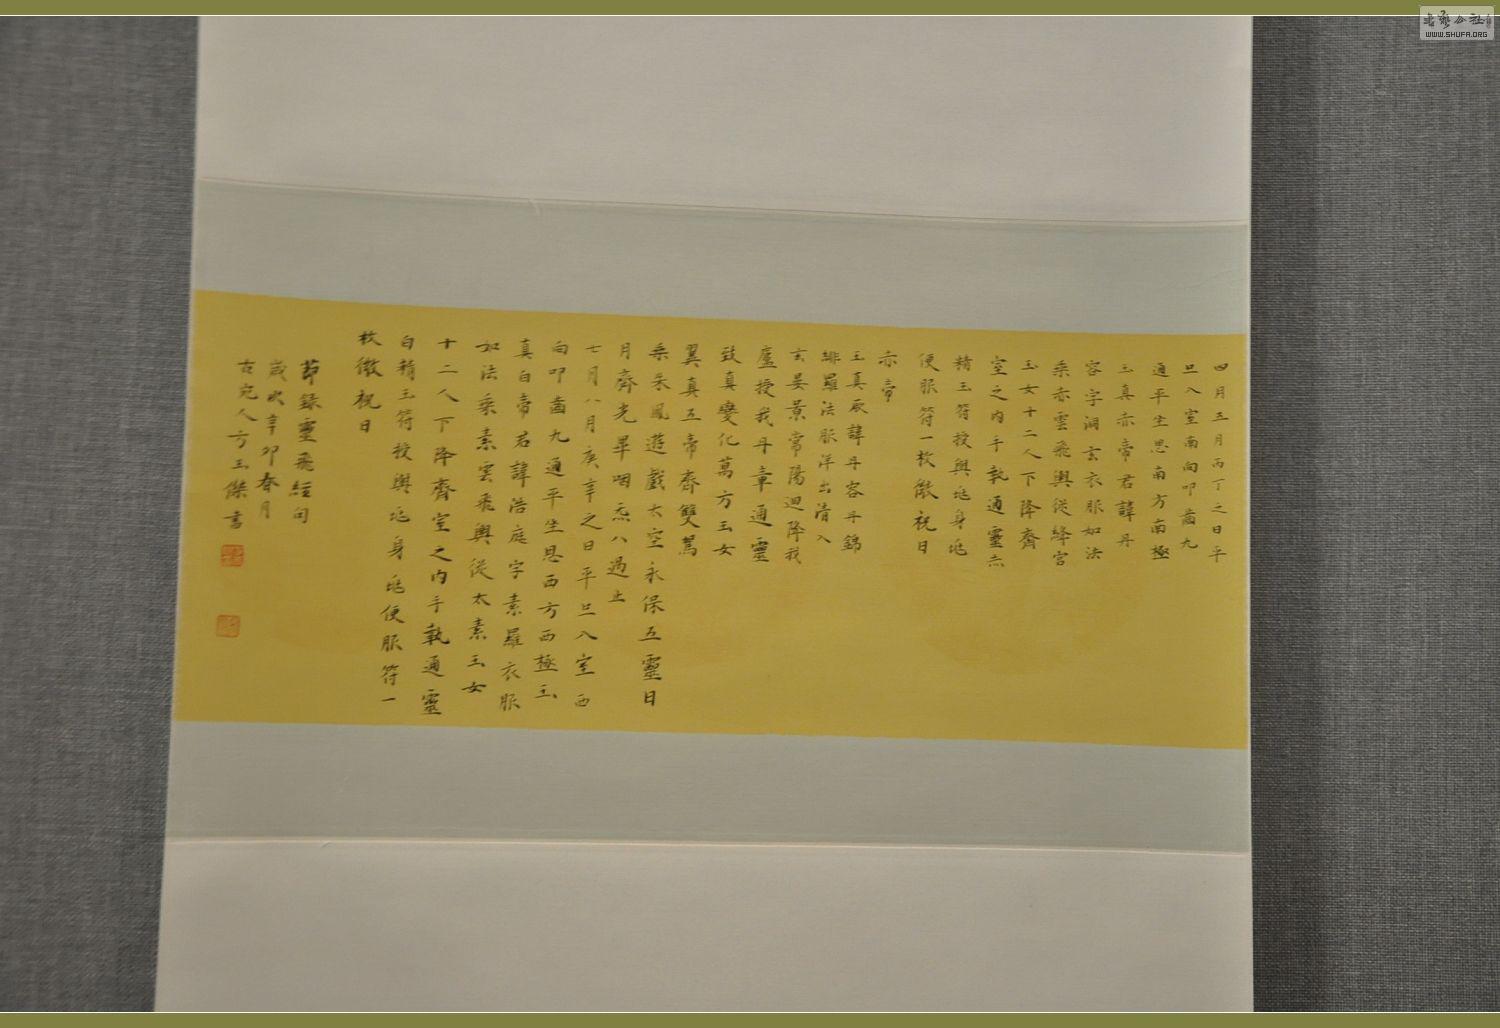 四月五月丙丁之日平
旦入室南向叩齒九
通平坐思南方南極
玉真赤帝君諱丹
容字洞玄衣服如法
乘赤雲飛輿從絳宮
玉女十二人下降齋
室之内手執通靈赤
精玉符授與兆身兆
便服符一枚微祝曰
赤帝
玉真厥諱丹容丹錦
緋羅法服洋出清入
玄晏景常陽迴降我
廬授我丹章通靈
致真變化萬方玉女
翼真五帝齊雙駕
乘朱鳳遊戲太空永保五靈日
月齊光畢咽炁八過止
七月八月庚辛之日平旦入室西
向叩齒九通平坐思西方西極玉
真白帝君諱浩庭字素羅衣服
如法乘素雲飛輿從太素玉女
十二人下降齋室之内手執通靈
白精玉符授與兆身兆便服符一
枚微祝曰
節錄靈飛經句
歲次辛卯春月
古宛人方玉傑書
书艺公社
WWW.SHUFA.ORG